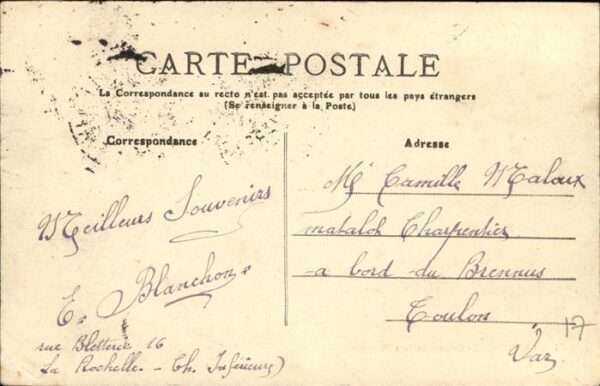 CARTE POSTALE
La Correspondance au recto n'est pas acceptée par tous les pays étrangers
(Se renseigner à la Poste)
Correspondance
Adresse
Meilleurs Souvenirs
E. Blanchon.
rue Bletterie 16
La Rochelle - Ch. Inférieure)
Mr Camille Maloux
matelot Charpentier
a bord du Brennus
Toulon
Var
17